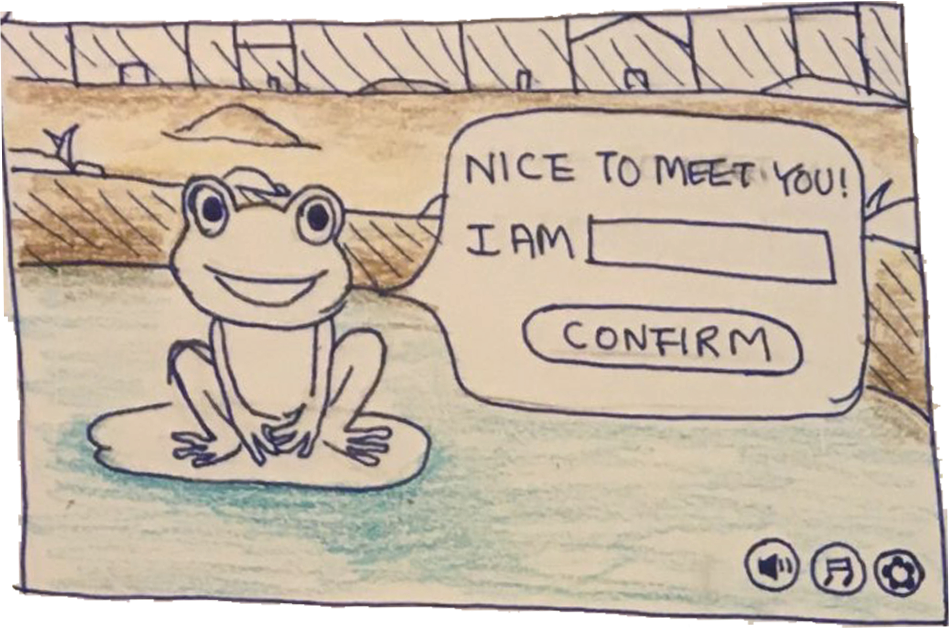 NICE TO MEET YOU!
I AM
CONFIRM